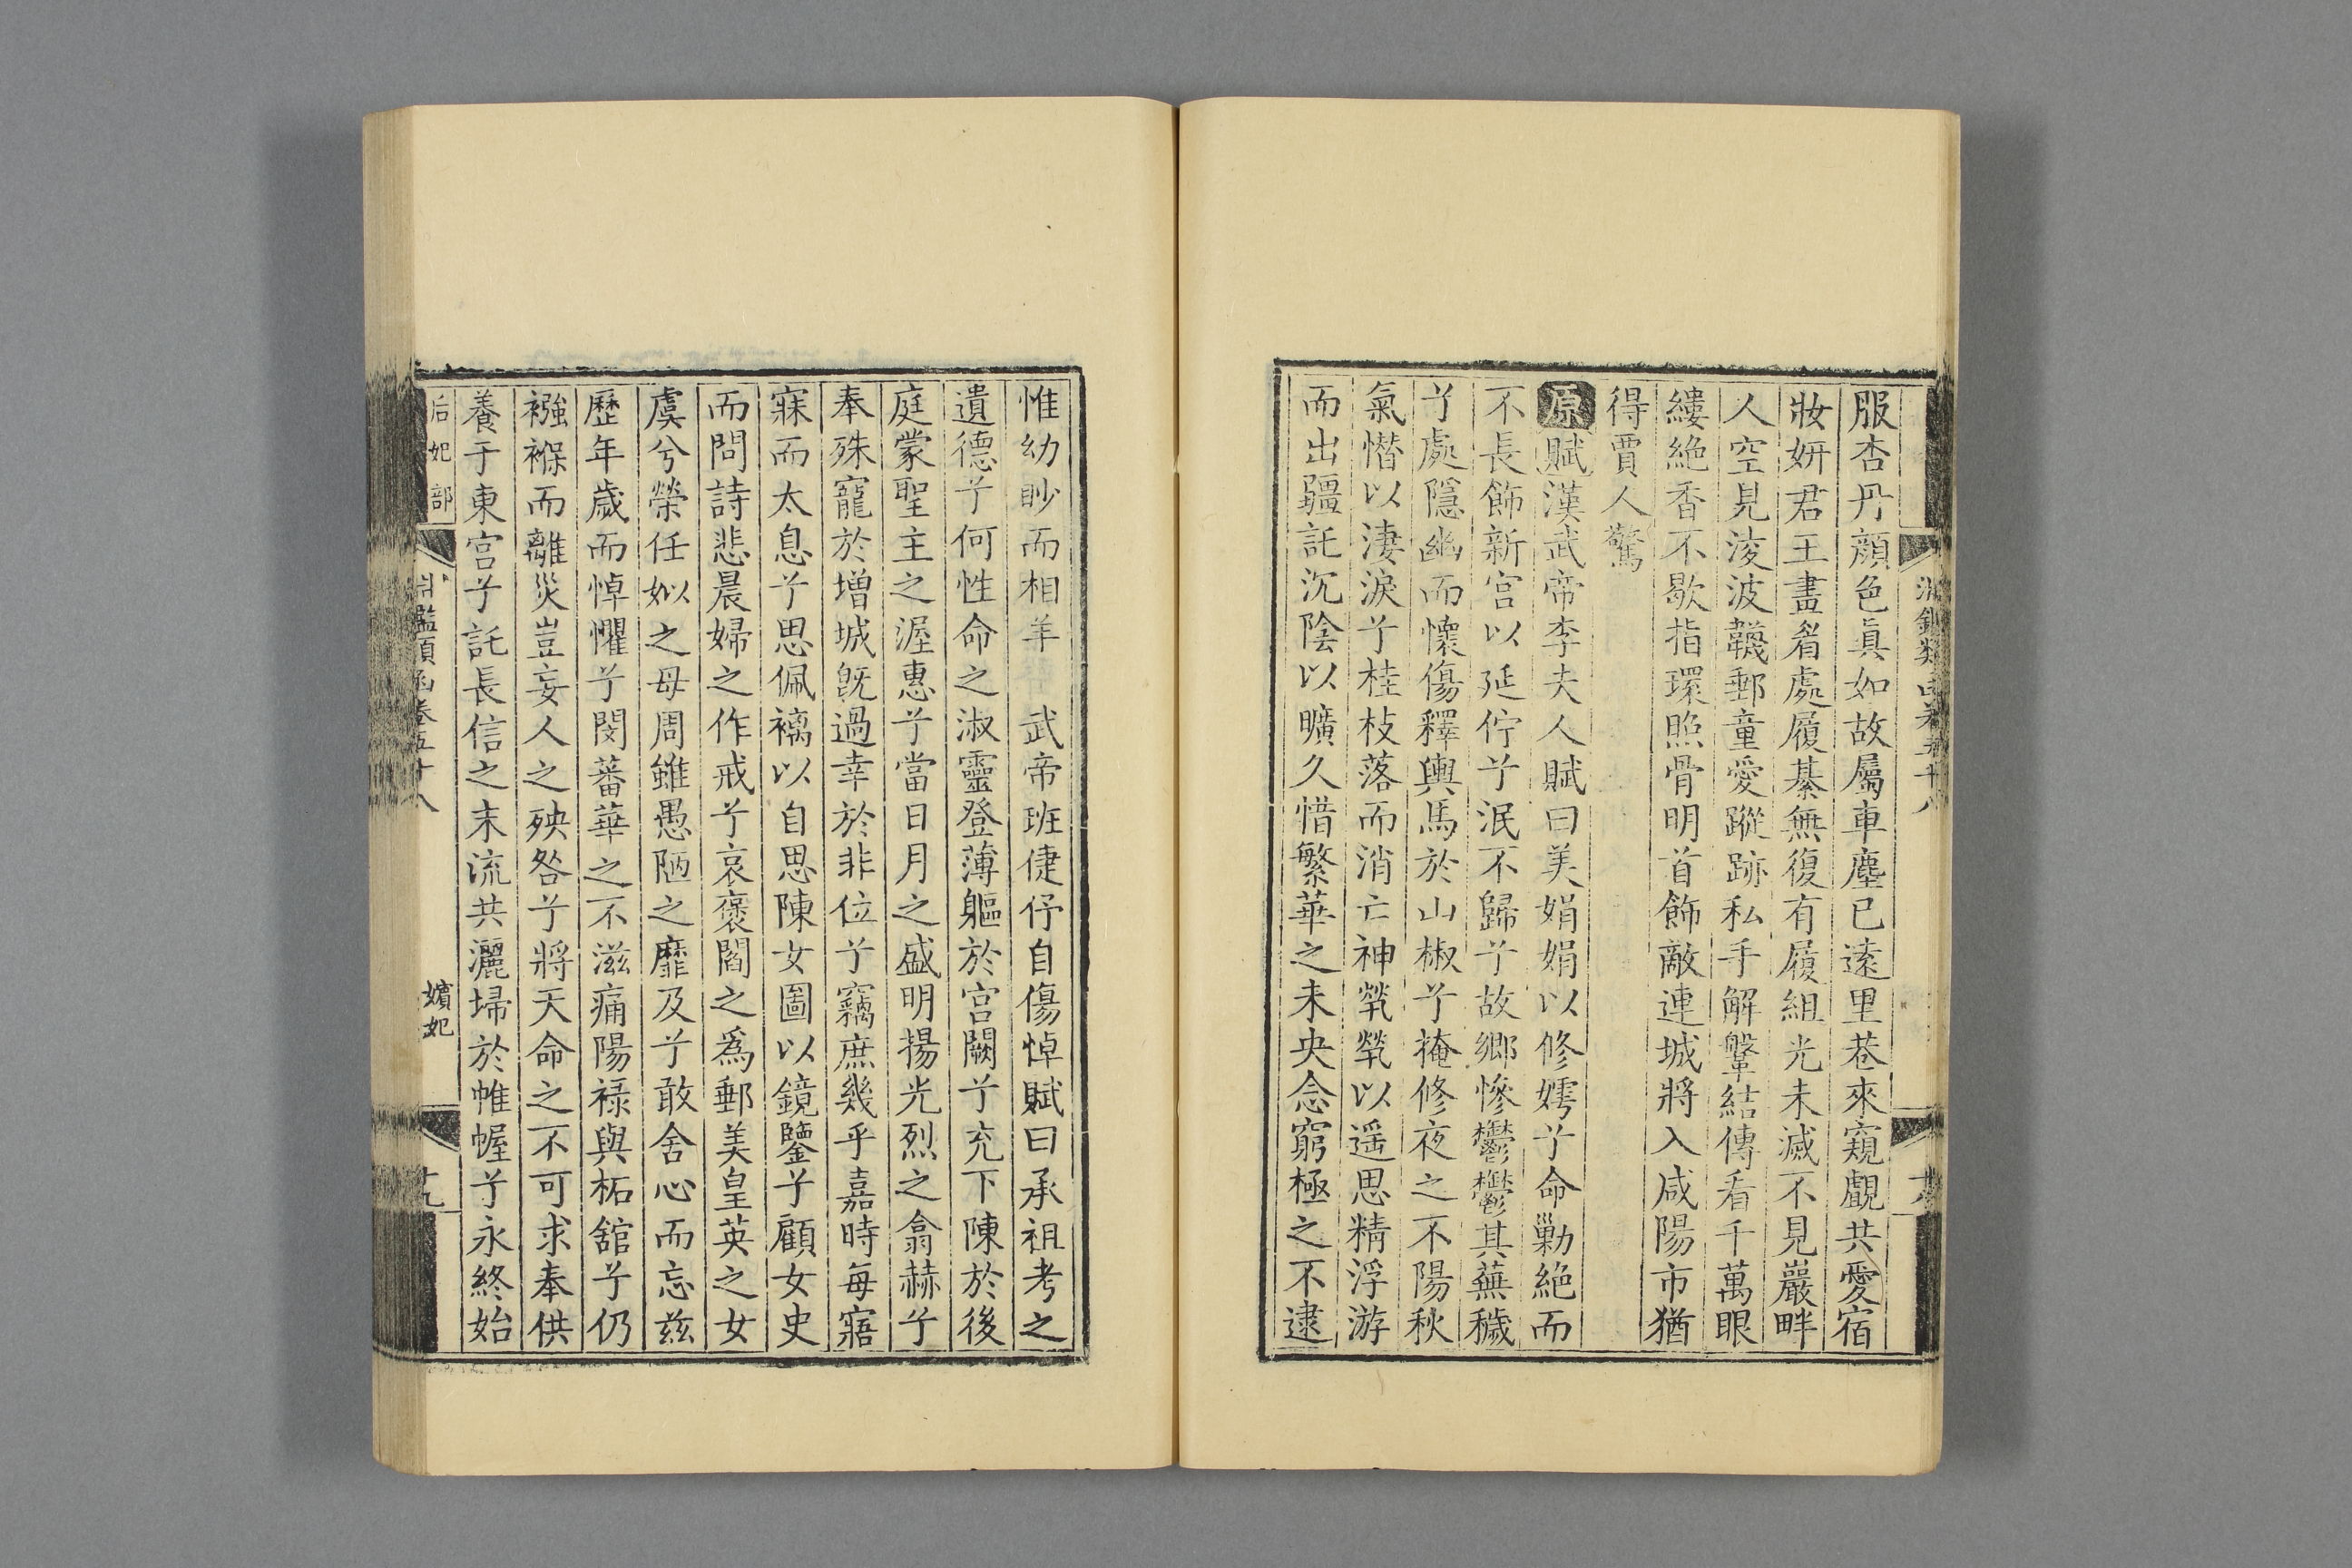 服杏丹顔色眞如故屬車塵已遠里巷來窺覰共愛宿
妝妍君王畫眉處履綦無復有履組光未滅不見巖畔
人空見淩波韈郵童愛蹤跡私手解鞶結傳看千萬眼
縷絶香不歇指環照骨明首飾敵連城將入咸陽市猶
得賈人驚
原賦漢武帝李夫人賦曰美娟娟以修嫮兮命勦絶而
不長飾新宫以延佇兮泯不歸兮故鄉慘鬱鬱其蕪穢
兮處隱幽而懷傷釋輿馬於山椒兮掩修夜之不陽秋
氣憯以淒淚兮桂枝落而消亡神煢煢以遥思精浮游
而出疆託沉陰以曠久惜繁華之未央念窮極之不逮
惟幼眇而相羊　武帝班倢伃自傷悼賦曰承祖考之
遺德兮何性命之淑靈登薄軀於宫闕兮充下陳於後
庭蒙聖主之渥惠兮當日月之盛明揚光烈之翕赫兮
奉殊寵於增城旣過幸於非位兮竊庶幾乎嘉時每寤
寐而太息兮思佩褵以自思陳女圖以鏡鑒兮顧女史
而問詩悲晨婦之作戒兮哀褒閻之爲郵美皇英之女
虞兮榮任姒之母周雖愚陋之靡及兮敢舍心而忘兹
歷年歲而悼懼兮閔蕃華之不滋痛陽禄與柘舘兮仍
襁褓而離災豈妾人之殃咎兮將天命之不可求奉供
養于東宫兮託長信之末流共灑埽於帷幄兮永終始
后妃部
淵鑑類函卷五十八
嬪妃
十九